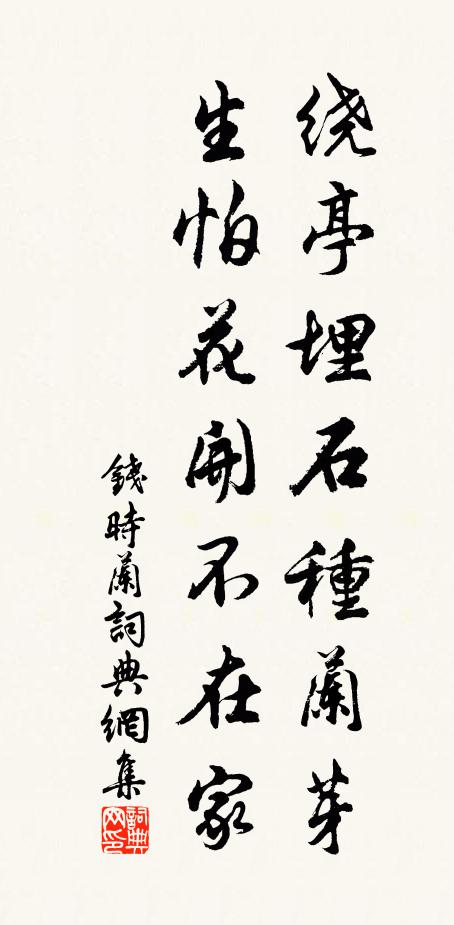 绕亭埋石種蘭芽
生怕花開不在家
錢時蘭詞典網集
詞典网印